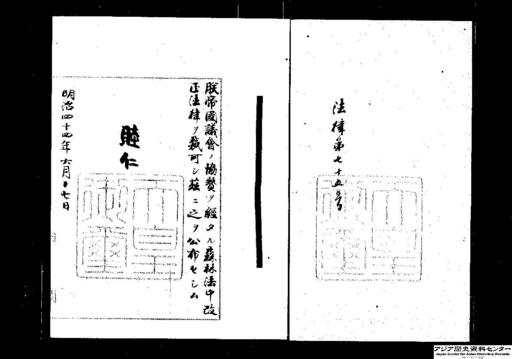 法律第七十五号
朕帝國議會ノ協賛ヲ經タル森林法中改
正法律ヲ裁可シ茲ニ之ヲ公布セシム
睦仁
明治四十四年六月十七日
天皇御璽
天皇御璽
アジア歴史資料センター
Japan Center for Asian Historical Records